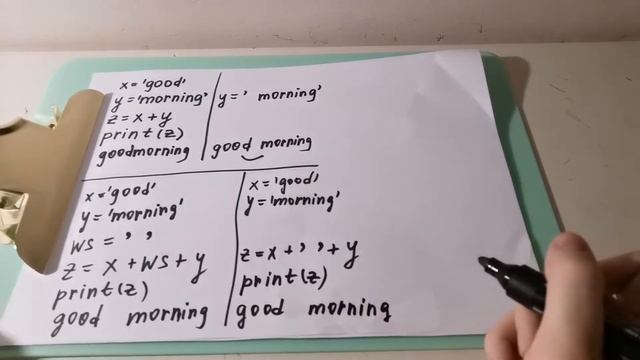 x='good'
y='morning'
z=x+y
print(z)
goodmorning
y=' morning'
good morning
x='good'
y='morning'
ws=' '
z=x+ws+y
print(z)
good morning
x='good'
y='morning'
z=x+' '+y
print(z)
good morning